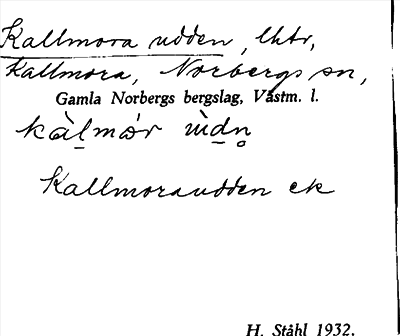 Kallmora udden, lktr,
Kallmora, Norbergs sn,
Gamla Norbergs bergslag, Västm. l.
kàḻmór ùḏn̥
Kallmoraudden ek
H. Ståhl 1932.